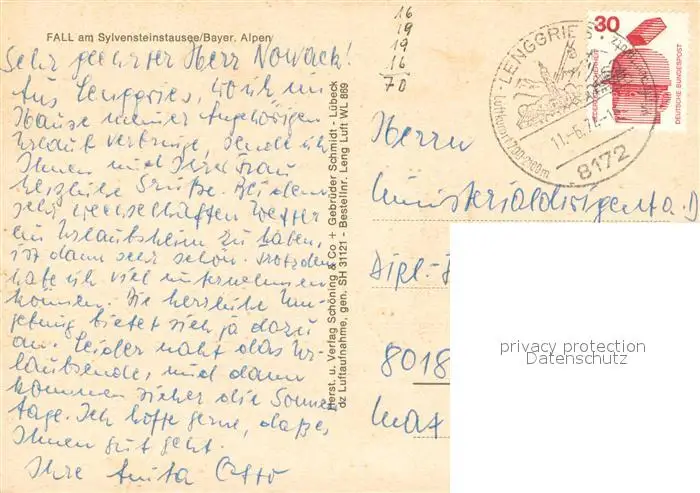 FALL am Sylvensteinstausee/Bayer. Alpen
Sehr geehrter Herr Nowack!
Aus Lenggries, wo ich im
Hause meiner Angehörigen
Urlaub verbringe, sende ich
Ihnen und Ihrer Frau
herzliche Grüße. Bei dem
sehr wechselhaften Wetter
ein Urlaubsheim zu haben,
ist dann sehr schön. Trotzdem
habe ich viel unternehmen
können. Die herrliche Um-
gebung bietet sich ja dazu
an. Leider naht das Ur-
laubsende, und dann
kommen sicher die Sonnen-
tage. Ich hoffe gerne, daß es
Ihnen gut geht.
Ihre Anita Otto
Herst. u. Verlag Schöning & Co + Gebrüder Schmidt - Lübeck
dz Luftaufnahme, gen. SH 31121 - Bestellnr. Leng Luft WL 869
16
19
19
16
70
LENGGRIES
Luftkurort 700-1700m
11.-6.74.-1
8172
30
DEUTSCHE BUNDESPOST
Herrn
Ministerialdirigent a. D
Dipl.-
8018
Max
privacy protection
Datenschutz